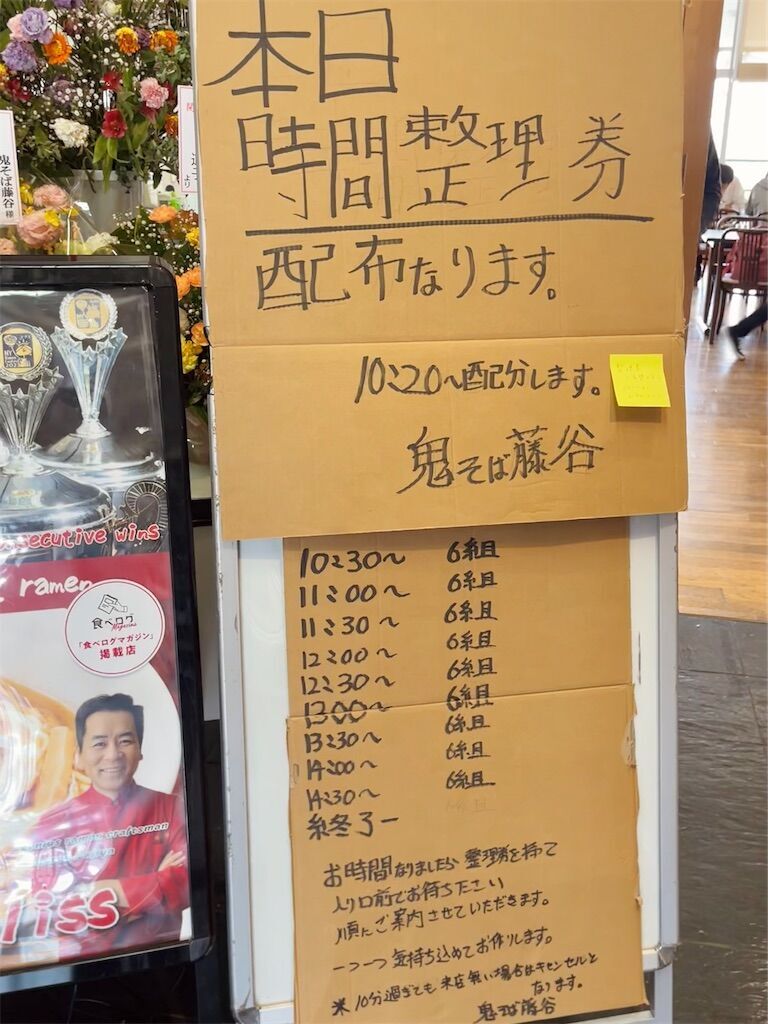 本日
時間整理券
配布なります。
10:20〜配分します。
鬼そば藤谷
10:30〜 6組
11:00〜 6組
11:30〜 6組
12:00〜 6組
12:30〜 6組
13:00〜 6組
13:30〜 6組
14:00〜 6組
14:30〜 6組
終了ー
お時間なりましたら整理券を持って
入り口前でお待ちださい
順にご案内させていただきます。
一つ一つ気持ち込めてお作りします。
※10分過ぎても来店無い場合はキャンセルと
なります。
鬼そば藤谷
鬼そば藤谷様
より
consecutive wins
ramen
食べログ
Magazine
「食べログマガジン」
掲載店
ramen craftsman
liss